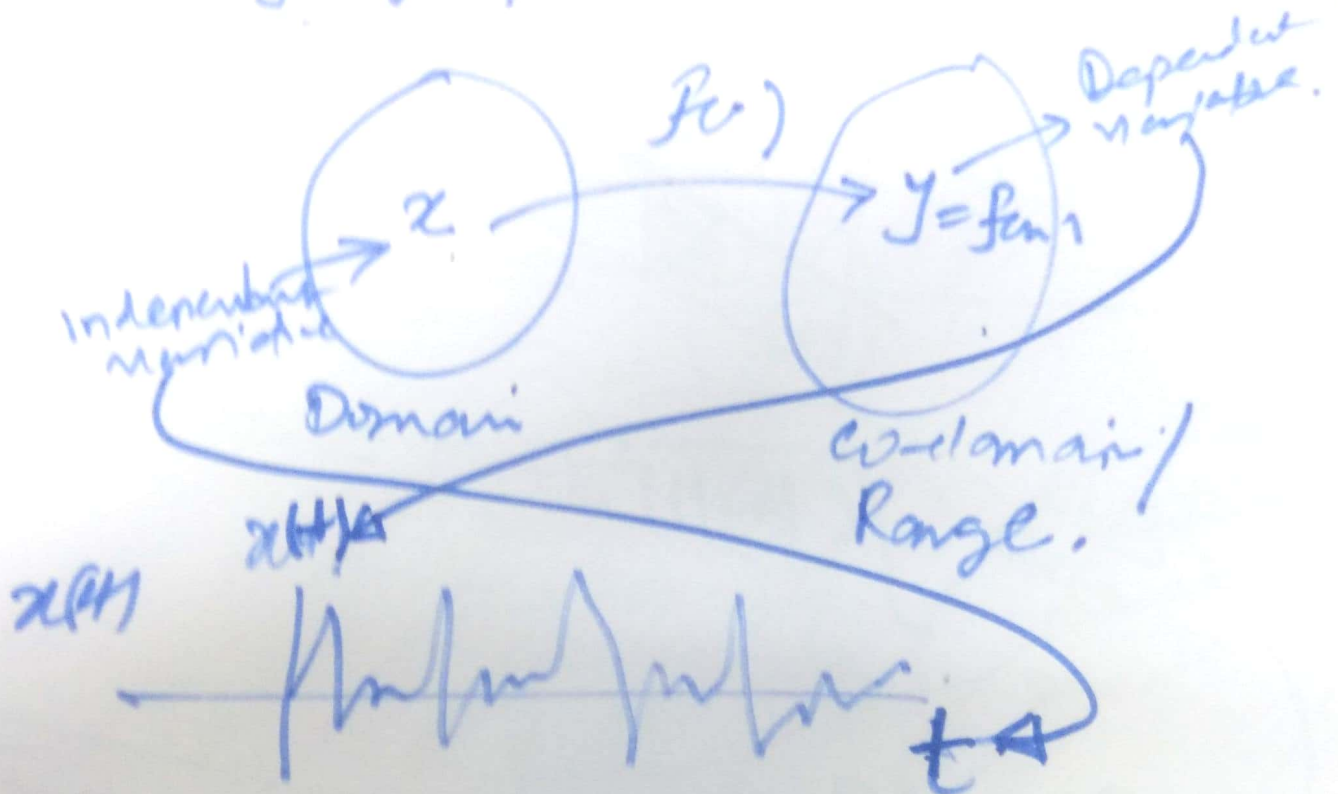 f(.)
Dependent
variable.
x
y = f(x)
Independent
variable
Domain
Co-domain/
Range.
x(t)
x(t)
t